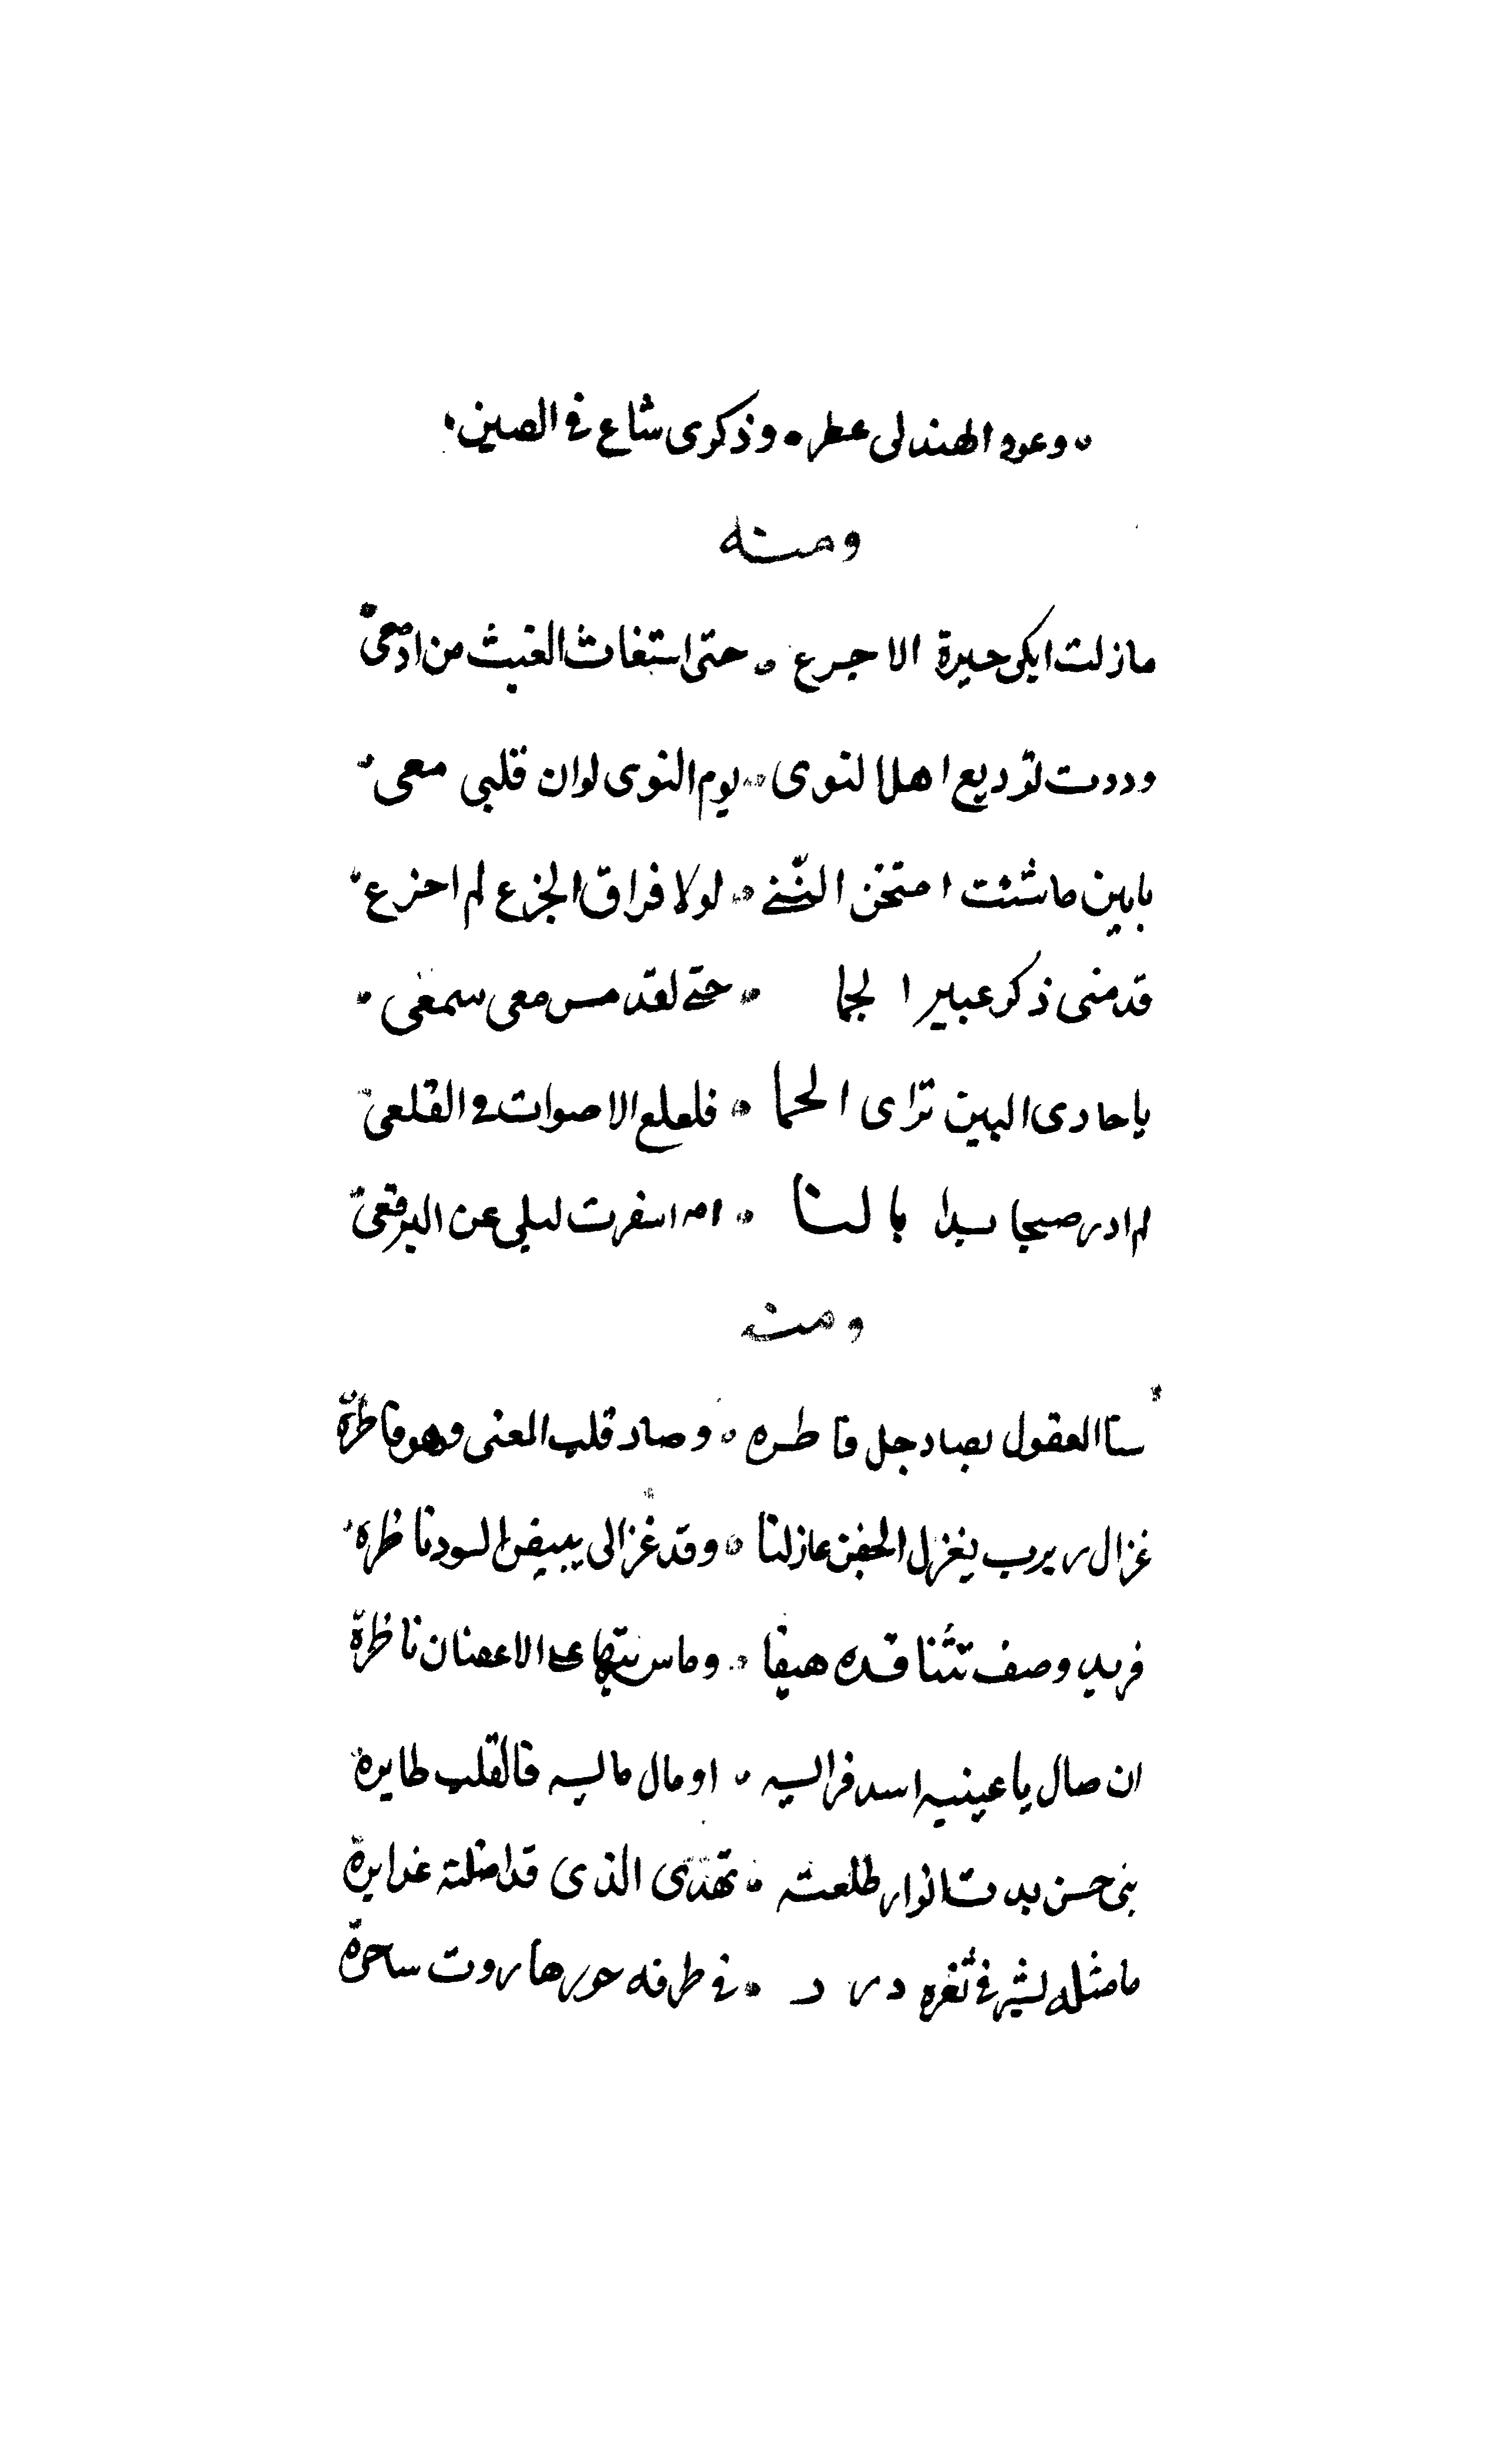 وعود الهند لى عطر • وذكرى شاع فى الصين
ومنه
مازلت ابكى حيرة الاجرع • حتى استغاث الغيث من ادمعى
وددت توديع اهلا لنوى • يوم النوى لوان قلبى معى
يابين ماشئت امتحن • لولا فراق الجزع لم اجزع
قد منى ذكر عبير الحما • حتى لقد مس معى سمعى
ياحادى البين تراى الحما • فلعلع الاصوات فى القلعى
لم ادر صبحا بدا بالنا • ام اسفرت ليلى عن البرقعى
ومنه
سبا العقول بصاد جل فاطره • وصاد قلب المعنى وهو فاطره
غزال ربرب يغزل الجفن غازلنا • وقد غزالى ببيض السود ناظره
فريد وصف تثنا قده هيفا • وماس تيها على الاغصان ناظره
ان صال ياعينيه اسد فراليه • او مال ماليه فالقلب طايره
بنى حسن بدت انوار طلعته • تهدى الذى قد اضلته غدايره
مامثله بشر فى ثغره درر • فى طرفه حور هاروت ساحره